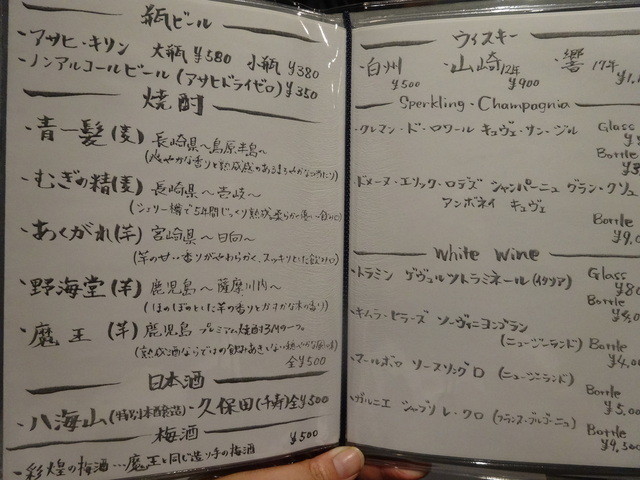 瓶ビール
・アサヒ・キリン 大瓶 ¥580 小瓶 ¥380
・ノンアルコールビール(アサヒドライゼロ) ¥350
焼酎
・青一髪(麦) 長崎県〜島原半島〜
・むぎの精(麦) 長崎県〜壱岐〜
(シェリー樽で5年間じっくり熟成
・あくがれ(芋) 宮崎県〜日向〜
(芋の甘い香りがやわらかく、スッキリとした飲み口)
・野海棠(芋) 鹿児島〜薩摩川内〜
(ほのぼのとした芋の香りとかすかな木の香り)
・魔王(芋) 鹿児島 プレミアム焼酎3Mの一つ。
(熟成酒ならではの飲みあきしない
全¥500
日本酒
・八海山(特別本醸造)・久保田(千寿)全¥500
梅酒 ¥500
・彩煌の梅酒…魔王と同じ造り手の梅酒
ウィスキー
・白州 ¥500 ・山崎12年 ¥900 ・響 17年
Sperkling・Champagnia
・クレマン・ド・ロワール キュヴェ・サン・ジル Glass
Bottle
・ドメーヌ・エリック・ロデズ シャンパーニュ グラン・クリュ
アンボネイ キュヴェ
Bottle
White Wine
・トラミン ゲヴュルツトラミネール(イタリア) Glass
Bottle
・キムラ・セラーズ ソーヴィニヨンブラン
(ニュージーランド) Bottle
・マールボロ (ニュージーランド)
Bottle
¥5,000
・ガルニエ シャブリ レ・クロ (フランス・ブルゴーニュ)
Bottle
¥9,500